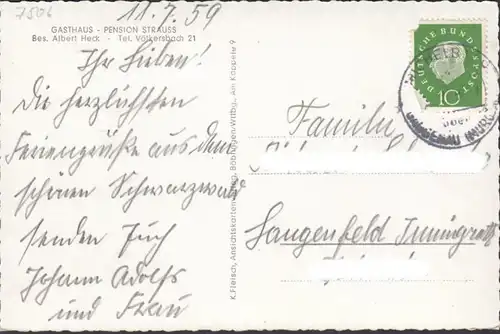 7506
11.7.59
GASTHAUS - PENSION STRAUSS
Bes. Albert Heck - Tel. Völkersbach 21
Ihr Lieben!
Die herzlichsten
Feriengrüße aus dem
schönen Schwarzwald
senden Euch
Johann Adolfs
und Frau
K.Fleisch, Ansichtskartenverlag, Böblingen/Wttbg., Am Käppele 9
DEUTSCHE BUNDESPOST
10
über
Familie
Langenfeld